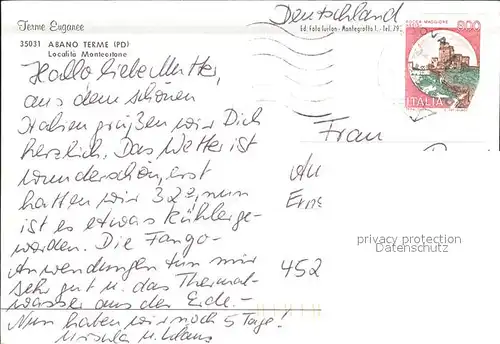 Terme Euganee
35031 ABANO TERME (PD)
Località Monteortone
Deutschland
Ed. Foto Turlon - Montegrotto T. - Tel. 79
ROCCA MAGGIORE
ASSISI
800
ITALIA
Hallo liebe Mutter,
aus dem schönen
Italien grüßen wir Dich
herzlich. Das Wetter ist
wunderschön, erst
hatten wir 32°, nun
ist es etwas kühler ge-
worden. Die Fango-
Anwendungen tun mir
sehr gut u. das Thermal-
wasser aus der Erde. -
Nun haben wir noch 5 Tage!
Ursula u. Klaus
Frau
Au
Erns
452
privacy protection